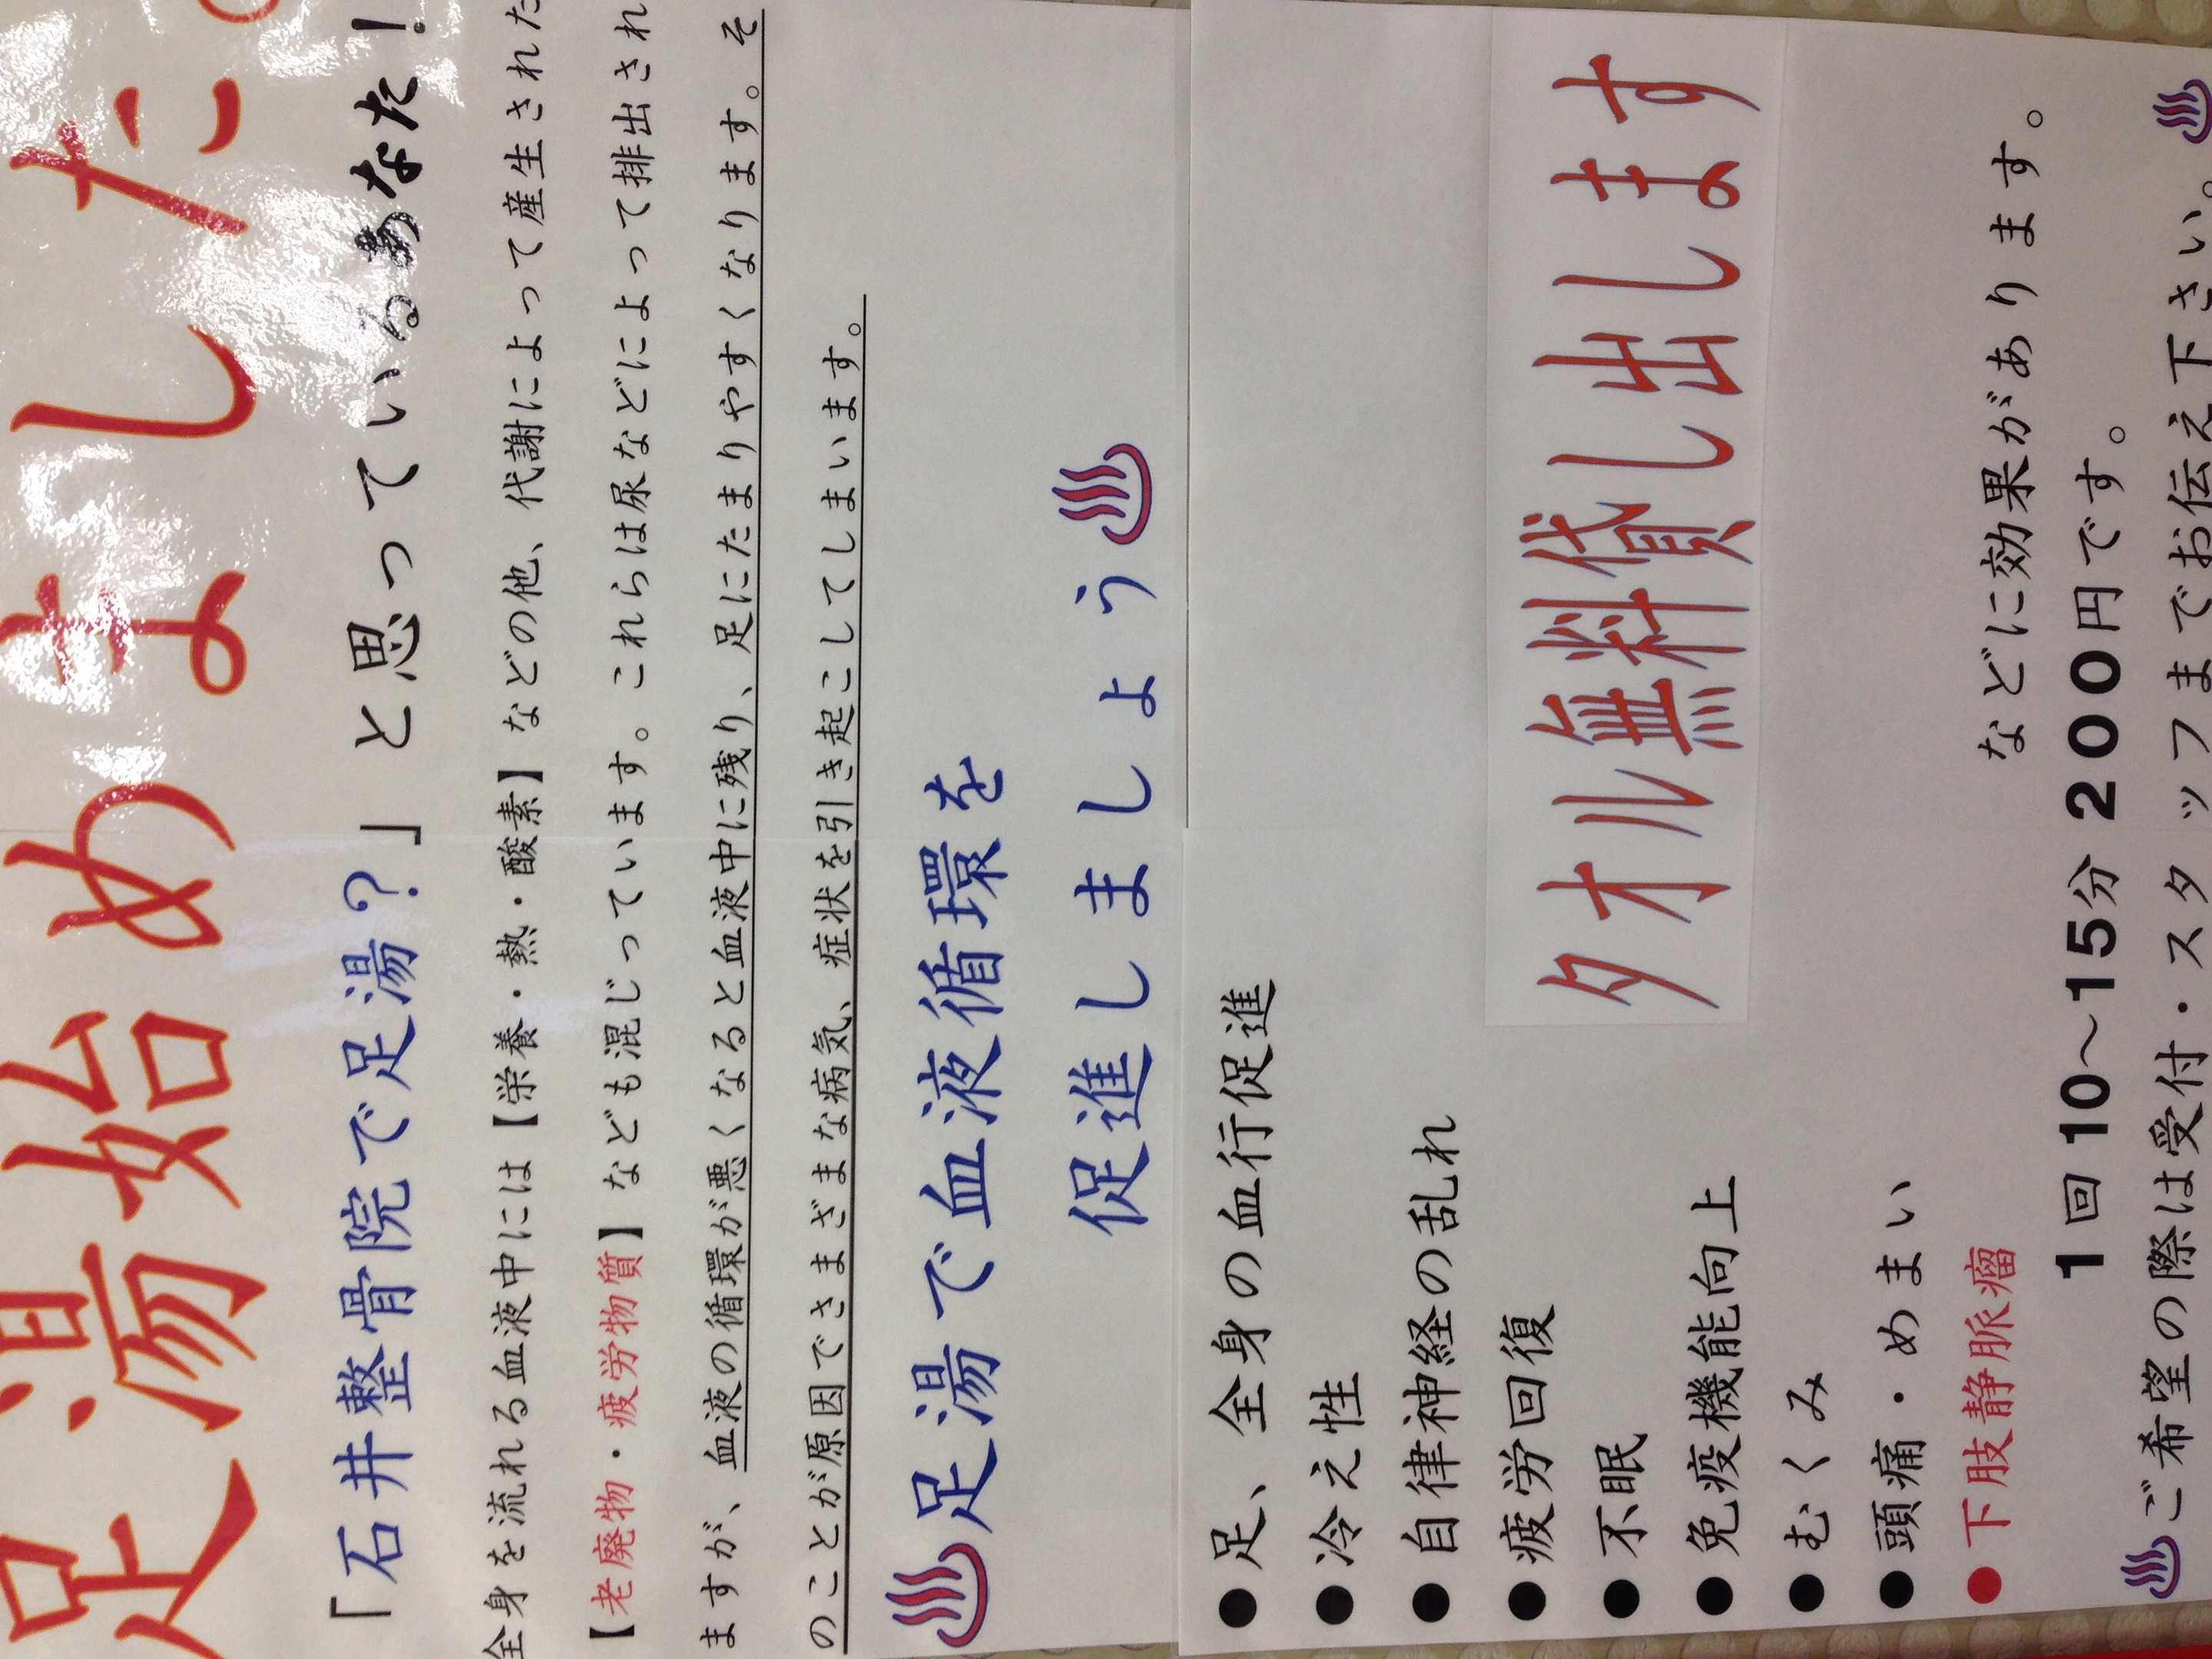 足湯始めました。
「石井整骨院で足湯？」と思っているあなた！
全身を流れる血液中には【栄養・熱・酸素】などの他、代謝によって産生された
【老廃物・疲労物質】なども混じっています。これらは尿などによって排出され
ますが、血液の循環が悪くなると血液中に残り、足にたまりやすくなります。そ
のことが原因でさまざまな病気、症状を引き起こしてしまいます。
♨足湯で血液循環を
促進しましょう♨
●足、全身の血行促進
●冷え性
●自律神経の乱れ
●疲労回復
●不眠
●免疫機能向上
タオル無料貸し出します
●むくみ
●頭痛・めまい
●下肢静脈瘤
などに効果があります。
1回10～15分 200円です。
♨ご希望の際は受付・スタッフまでお伝え下さい。♨